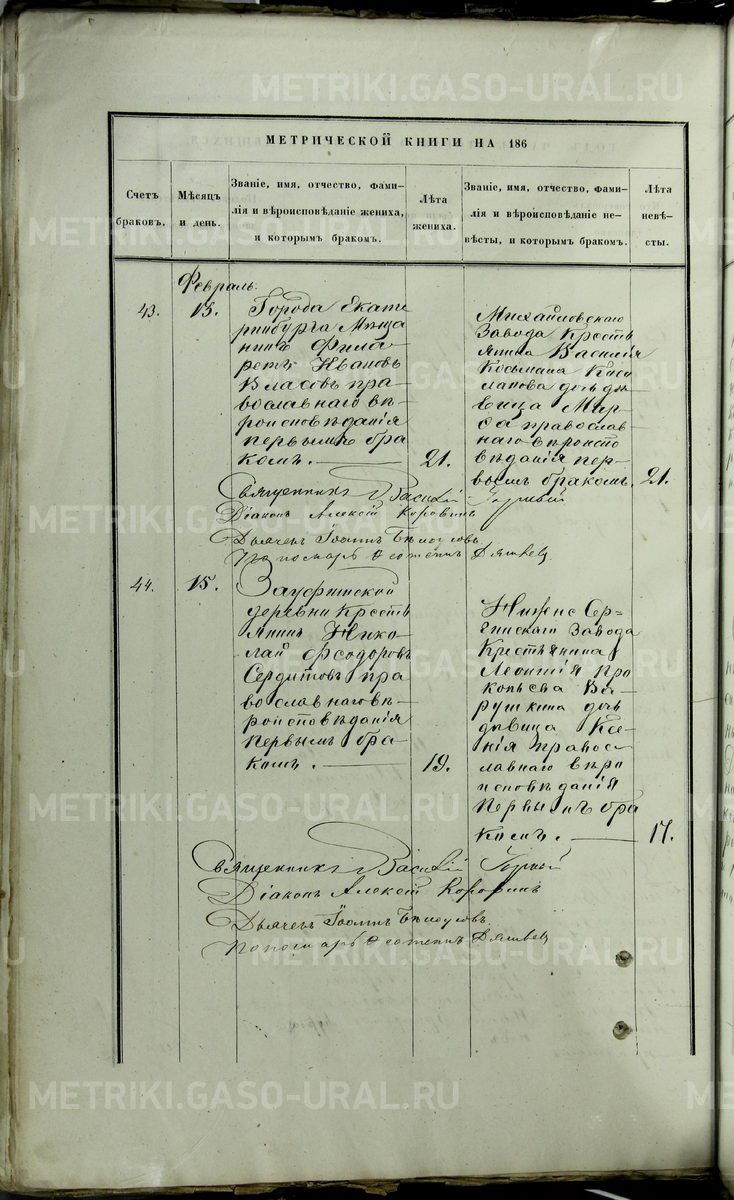 METRIKI.GASO-URAL.RU
МЕТРИЧЕСКОЙ КНИГИ НА 186
Счетъ браковъ.
Мѣсяцъ и день.
Званіе, имя, отчество, фами-
лія и вѣроисповѣданіе жениха,
и которымъ бракомъ.
Лѣта жениха.
Званіе, имя, отчество, фами-
лія и вѣроисповѣданіе не-
вѣсты, и которымъ бракомъ.
Лѣта невѣ-
сты.
Февраль.
43.
13.
Города Екате
ринбурга Мѣща
нинъ Фила
ретъ Ивановъ
Власовъ пра-
вославнаго вѣ-
роисповѣданія
первымъ бра
комъ.
21.
Михайловскаго
Завода Кресть
янина Василія
Косьмина
дочь дѣ
вица
православ
наго вѣроиспо
вѣданія пер-
вымъ бракомъ.
21.
Священникъ Василій Горный
Діаконъ Алексій Коровинъ
Дьячекъ Іоаннъ Бѣлоусовъ
Пономарь
44.
15.
Зауфимской
деревни Кресть
янинъ Нико-
лай Феодоровъ
Сердитовъ пра
вославнаго вѣ-
роисповѣданія
первымъ бра-
комъ.
19.
Нижне Сер-
гинскаго Завода
Крестьянина
Леонтія Про
копьева Ва-
рушкина дочь
дѣвица Ксе-
нія правос-
лавнаго вѣро
исповѣданія
первымъ бра
комъ.
17.
Священникъ Василій Горный
Діаконъ Алексій Коровинъ
Дьячекъ Іоаннъ Бѣлоусовъ
Пономарь